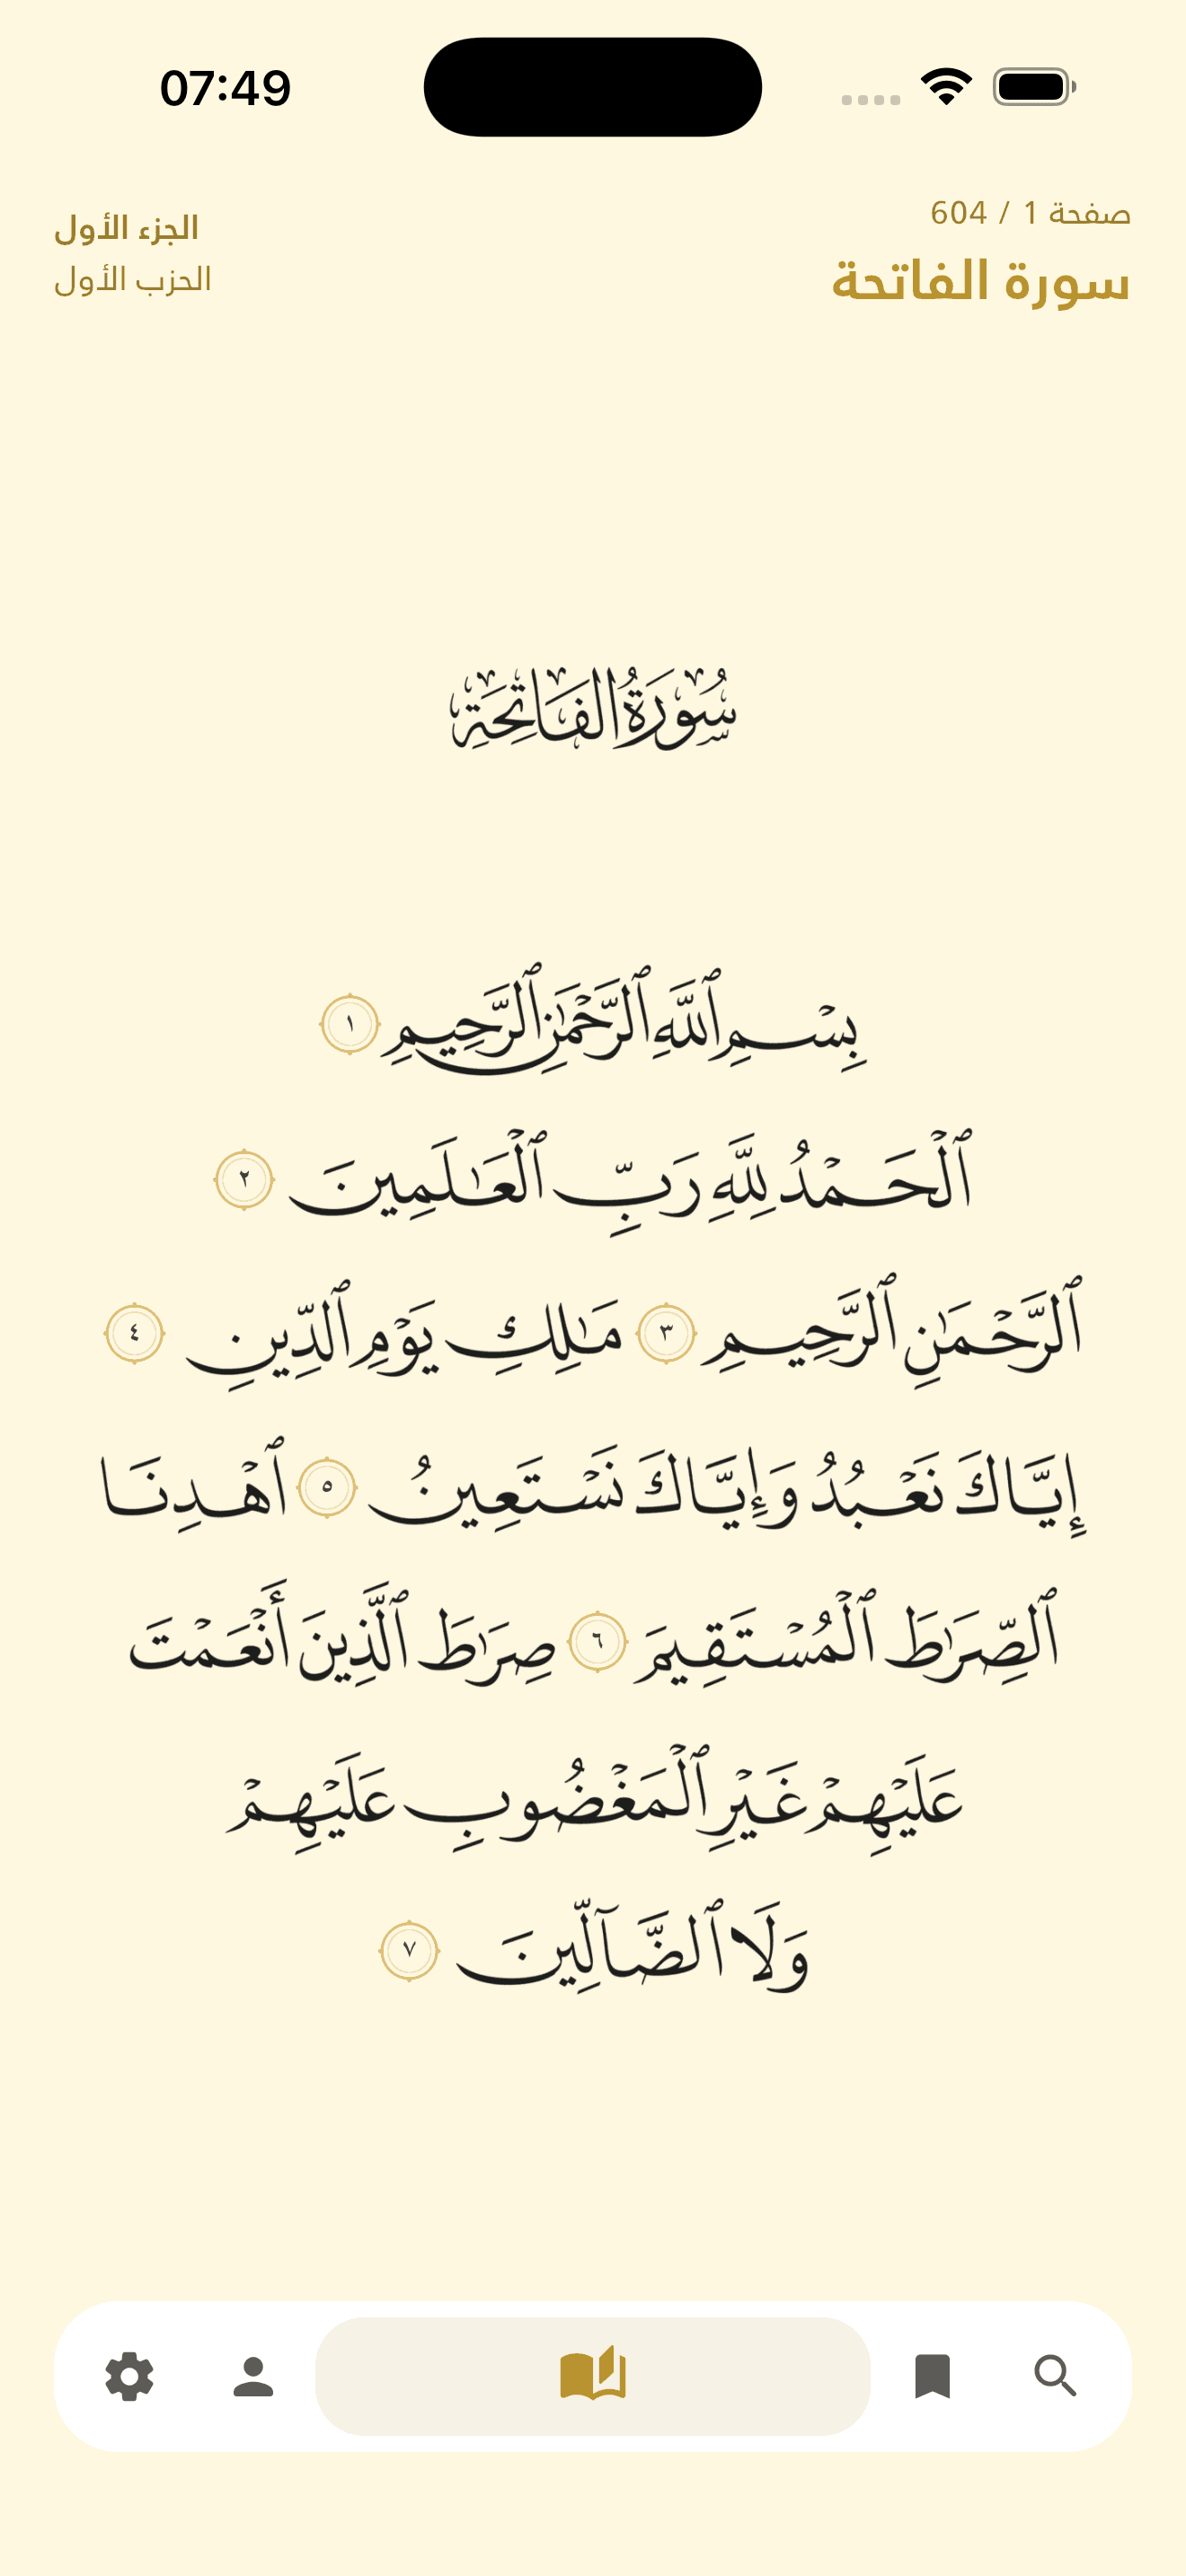 07:49
صفحة 1 / 604
سورة الفاتحة
الجزء الأول
الحزب الأول
سُورَةُ الفَاتِحَةِ
بِسْمِ ٱللَّهِ ٱلرَّحْمَٰنِ ٱلرَّحِيمِ ١
ٱلْحَمْدُ لِلَّهِ رَبِّ ٱلْعَٰلَمِينَ ٢
ٱلرَّحْمَٰنِ ٱلرَّحِيمِ ٣ مَٰلِكِ يَوْمِ ٱلدِّينِ ٤
إِيَّاكَ نَعْبُدُ وَإِيَّاكَ نَسْتَعِينُ ٥ ٱهْدِنَا
ٱلصِّرَٰطَ ٱلْمُسْتَقِيمَ ٦ صِرَٰطَ ٱلَّذِينَ أَنْعَمْتَ
عَلَيْهِمْ غَيْرِ ٱلْمَغْضُوبِ عَلَيْهِمْ
وَلَا ٱلضَّآلِّينَ ٧